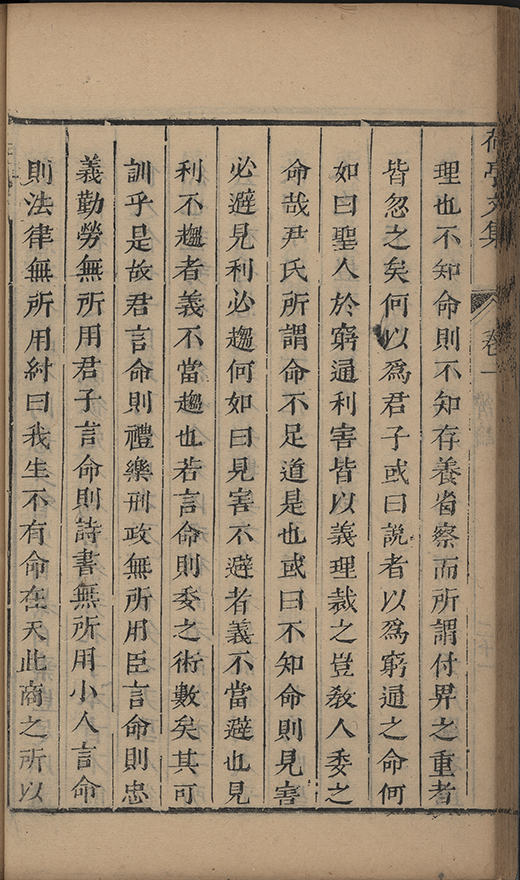 荷亭文集 卷一
理也不知命則不知存養省察而所謂付畀之重者
皆忽之矣何以爲君子或曰說者以爲窮通之命何
如曰聖人於窮通利害皆以義理裁之豈敎人委之
命哉尹氏所謂命不足道是也或曰不知命則見害
必避見利必趨何如曰見害不避者義不當避也見
利不趨者義不當趨也若言命則委之術數矣其可
訓乎是故君言命則禮樂刑政無所用臣言命則忠
義勤勞無所用君子言命則詩書無所用小人言命
則法律無所用紂曰我生不有命在天此商之所以